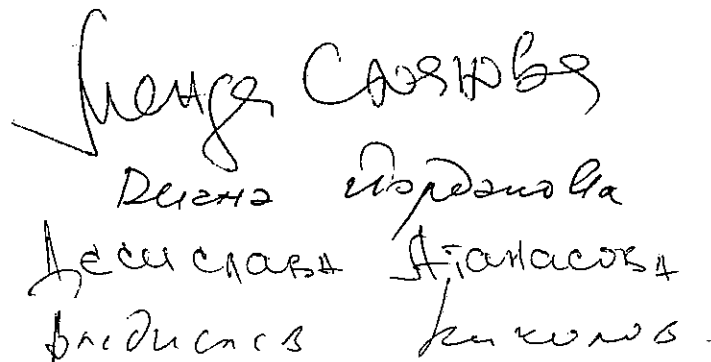 Менда Стоянова
Диана Йорданова
Десислава Атанасова
Владислав Николов